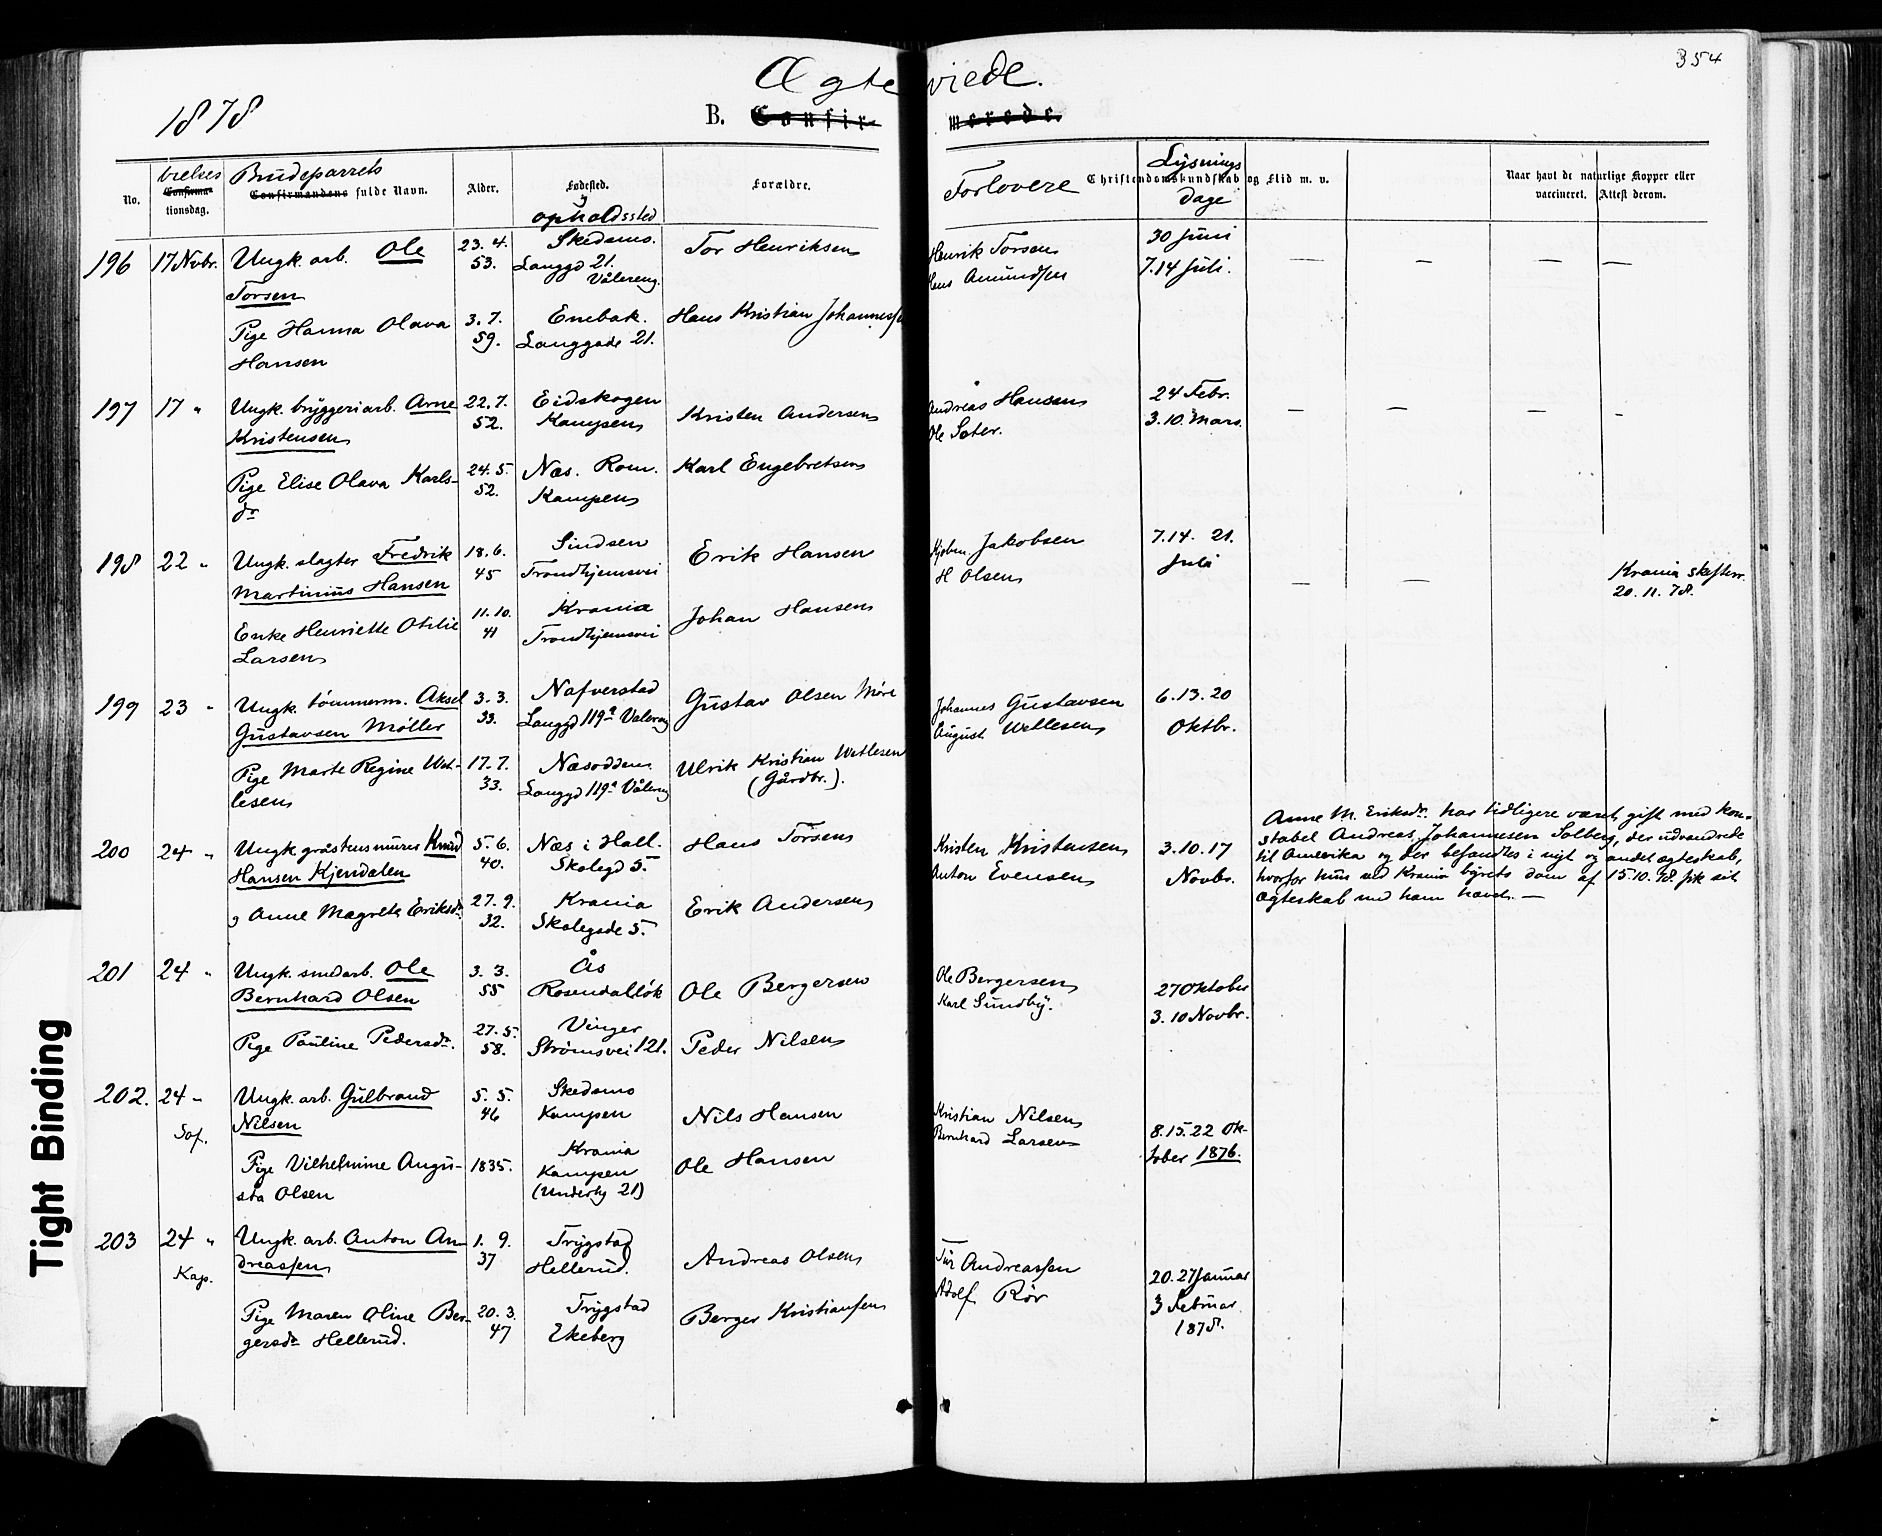 354
Ægteviede.
1878
B. Confirmerede.
No.
Vielses
Confirmationsdag.
Brudeparrets
Confirmandens fulde Navn.
Alder.
Fødested.
og
opholdssted
Forældre.
Forlovere
Christendomskundskab og Flid m. v.
Lysnings
dage
Naar havt de naturlige Kopper eller
vaccineret. Attest derom.
196 17 Novbr. Ungk. arb. Ole 23. 4. Skedsmo. Tor Henriksen Henrik Torsen 30 Juni
Torsen 53. Langgd 21. Vålereng. Hans Amundsen 7.14 Juli. — — — —
Pige Hanna Olava 3. 7. Enebak. Hans Kristian Johannessen
Hansen 59. Langgade 21.
197 17 " Ungk. bryggeriarb. Arne 22. 7. Eidskogen Kristen Andersen Andreas Hansen 24 Febr.
Kristensen 52. Kampen Ole Sater. 3.10. Mars. — — — -
Pige Elise Olava Karls- 24. 5. Næs. Rom. Karl Engebretsen
dr 52. Kampen
198 22 " Ungk. slagter Fredrik 18. 6. Sindsen Erik Hansen Jakobsen 7.14. 21.
Martinius Hansen 45 Trondhjemsvei H Olsen Juli — — Krania skifterr.
20. 11. 78.
Enke Henriette Otilie 11. 10. Krania Johan Hansen
Larsen 41 Trondhjemsvei
199 23 " Ungk. tømmerm. Aksel 3. 3. Nafverstad Gustav Olsen Møre Johannes Gustavsen 6.13.20
Gustavsen Møller 33. Langgd 119a Valereng August Wetlesen Oktbr.
Pige Marte Regine Wet- 17. 7. Næsodden Ulrik Kristian Wetlesen
lesen 33. Langgd 119a Vålereng (Gårdbr.).
200 24 " Ungk gråstensmurer Knud 5. 6. Næs i Hall. Hans Torsen Kristen Kristensen 3.10.17
Hansen Kjendalen 40. Skolegd 5. Anton Evensen Novbr.
og Anne Magrete Eriksdr 27. 9. Krania Erik Andersen
32. Skolegade 5.
Anne M. Eriksdr. har tidligere været gift med kon-
stabel Andreas Johannesen Solberg, der udvandrede
til Amerika og der befandtes i nyt og andet ægteskab,
hvorfor hun ved Krania byrets dom af 15.10.78 fik sit
ægteskab med ham hævet. —
201 24 " Ungk. smedarb. Ole 3. 3. Ås Ole Bergersen Ole Bergersen 27 Oktober
Bernhard Olsen 55 Rosendalløk Karl Sundby. 3.10 Novbr.
Pige Pauline Pedersdr. 27. 5. Vinger Peder Nilsen
58. Strømsvei 121.
202. 24 " Ungk. arb. Gulbrand 5. 5. Skedsmo Nils Hansen Kristian Nilsen
Sof. Nilsen 46 Kampen Bernhard Larsen 8.15.22 Ok-
tober 1876.
Pige Vilhelmine Augu- 1835. Krania Ole Hansen
sta Olsen Kampen
(Underhg 21)
203 24 " Ungk. arb. Anton An- 1. 9. Trygstad Andreas Olsen Andreassen 20. 27 Januar
Kap. dreassen 37 Hellerud. Adolf Rör 3 Februar.
1878.
Pige Maren Oline Ber- 20. 3. Trygstad Berger Kristiansen
gersdr Hellerud. 47 Ekeberg
Tight Binding